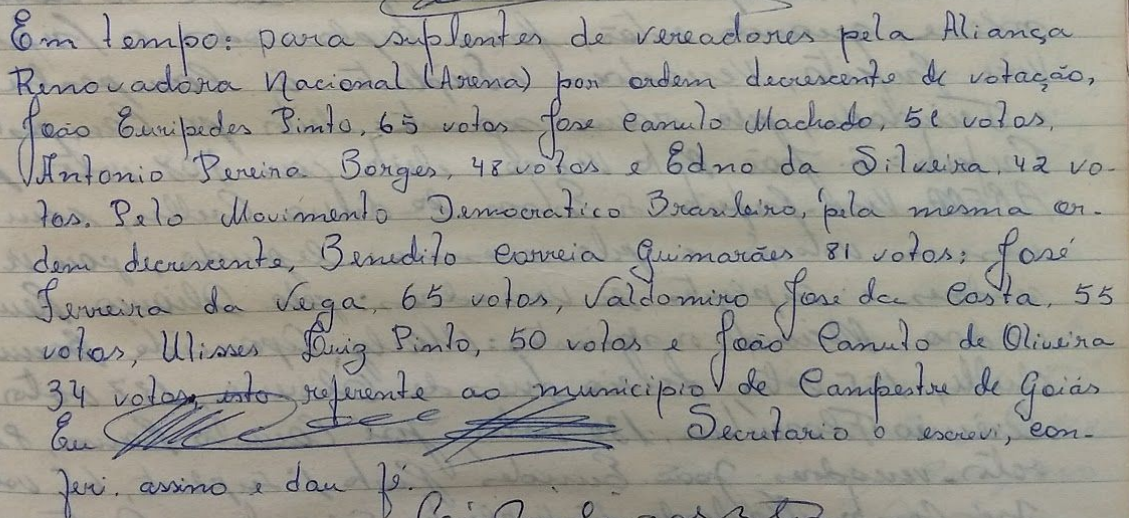 Em tempo: para suplentes de vereadores pela Aliança
Renovadora Nacional (Arena) por ordem decrescente de votação,
João Euripedes Pinto, 65 votos José Canuto Machado, votos,
Antonio Pereira Borges, 48 votos e Edno da Silveira, 42 vo-
tos. Pelo Movimento Democratico Brasileiro, pela mesma or-
dem decrescente, Benedito Correia Guimarães 81 votos; José
Ferreira da Veiga, 65 votos, Valdomiro José da Costa, 55
votos, Ulisses Luiz Pinto, 50 votos e João Canuto de Oliveira
34 votos, isto referente ao municipio de Campestre de Goiás
Eu Secretario o escrevi, con-
feri, assino e dou fé.